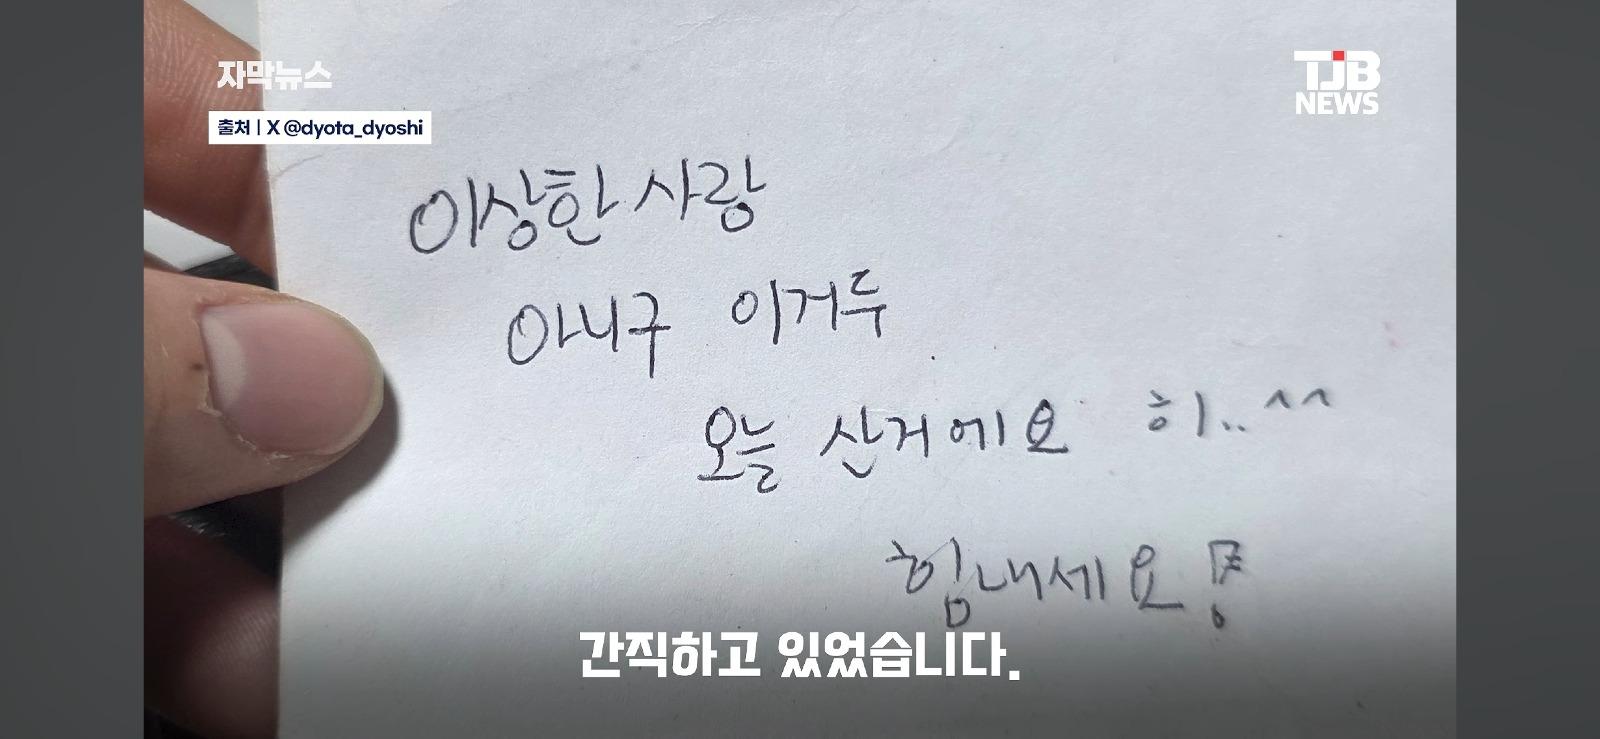 자막뉴스
TJB
NEWS
출처 | X @dyota_dyoshi
이상한 사랑
아니구 이거두
오늘 산거에요 히..^^
힘내세요!
간직하고 있었습니다.